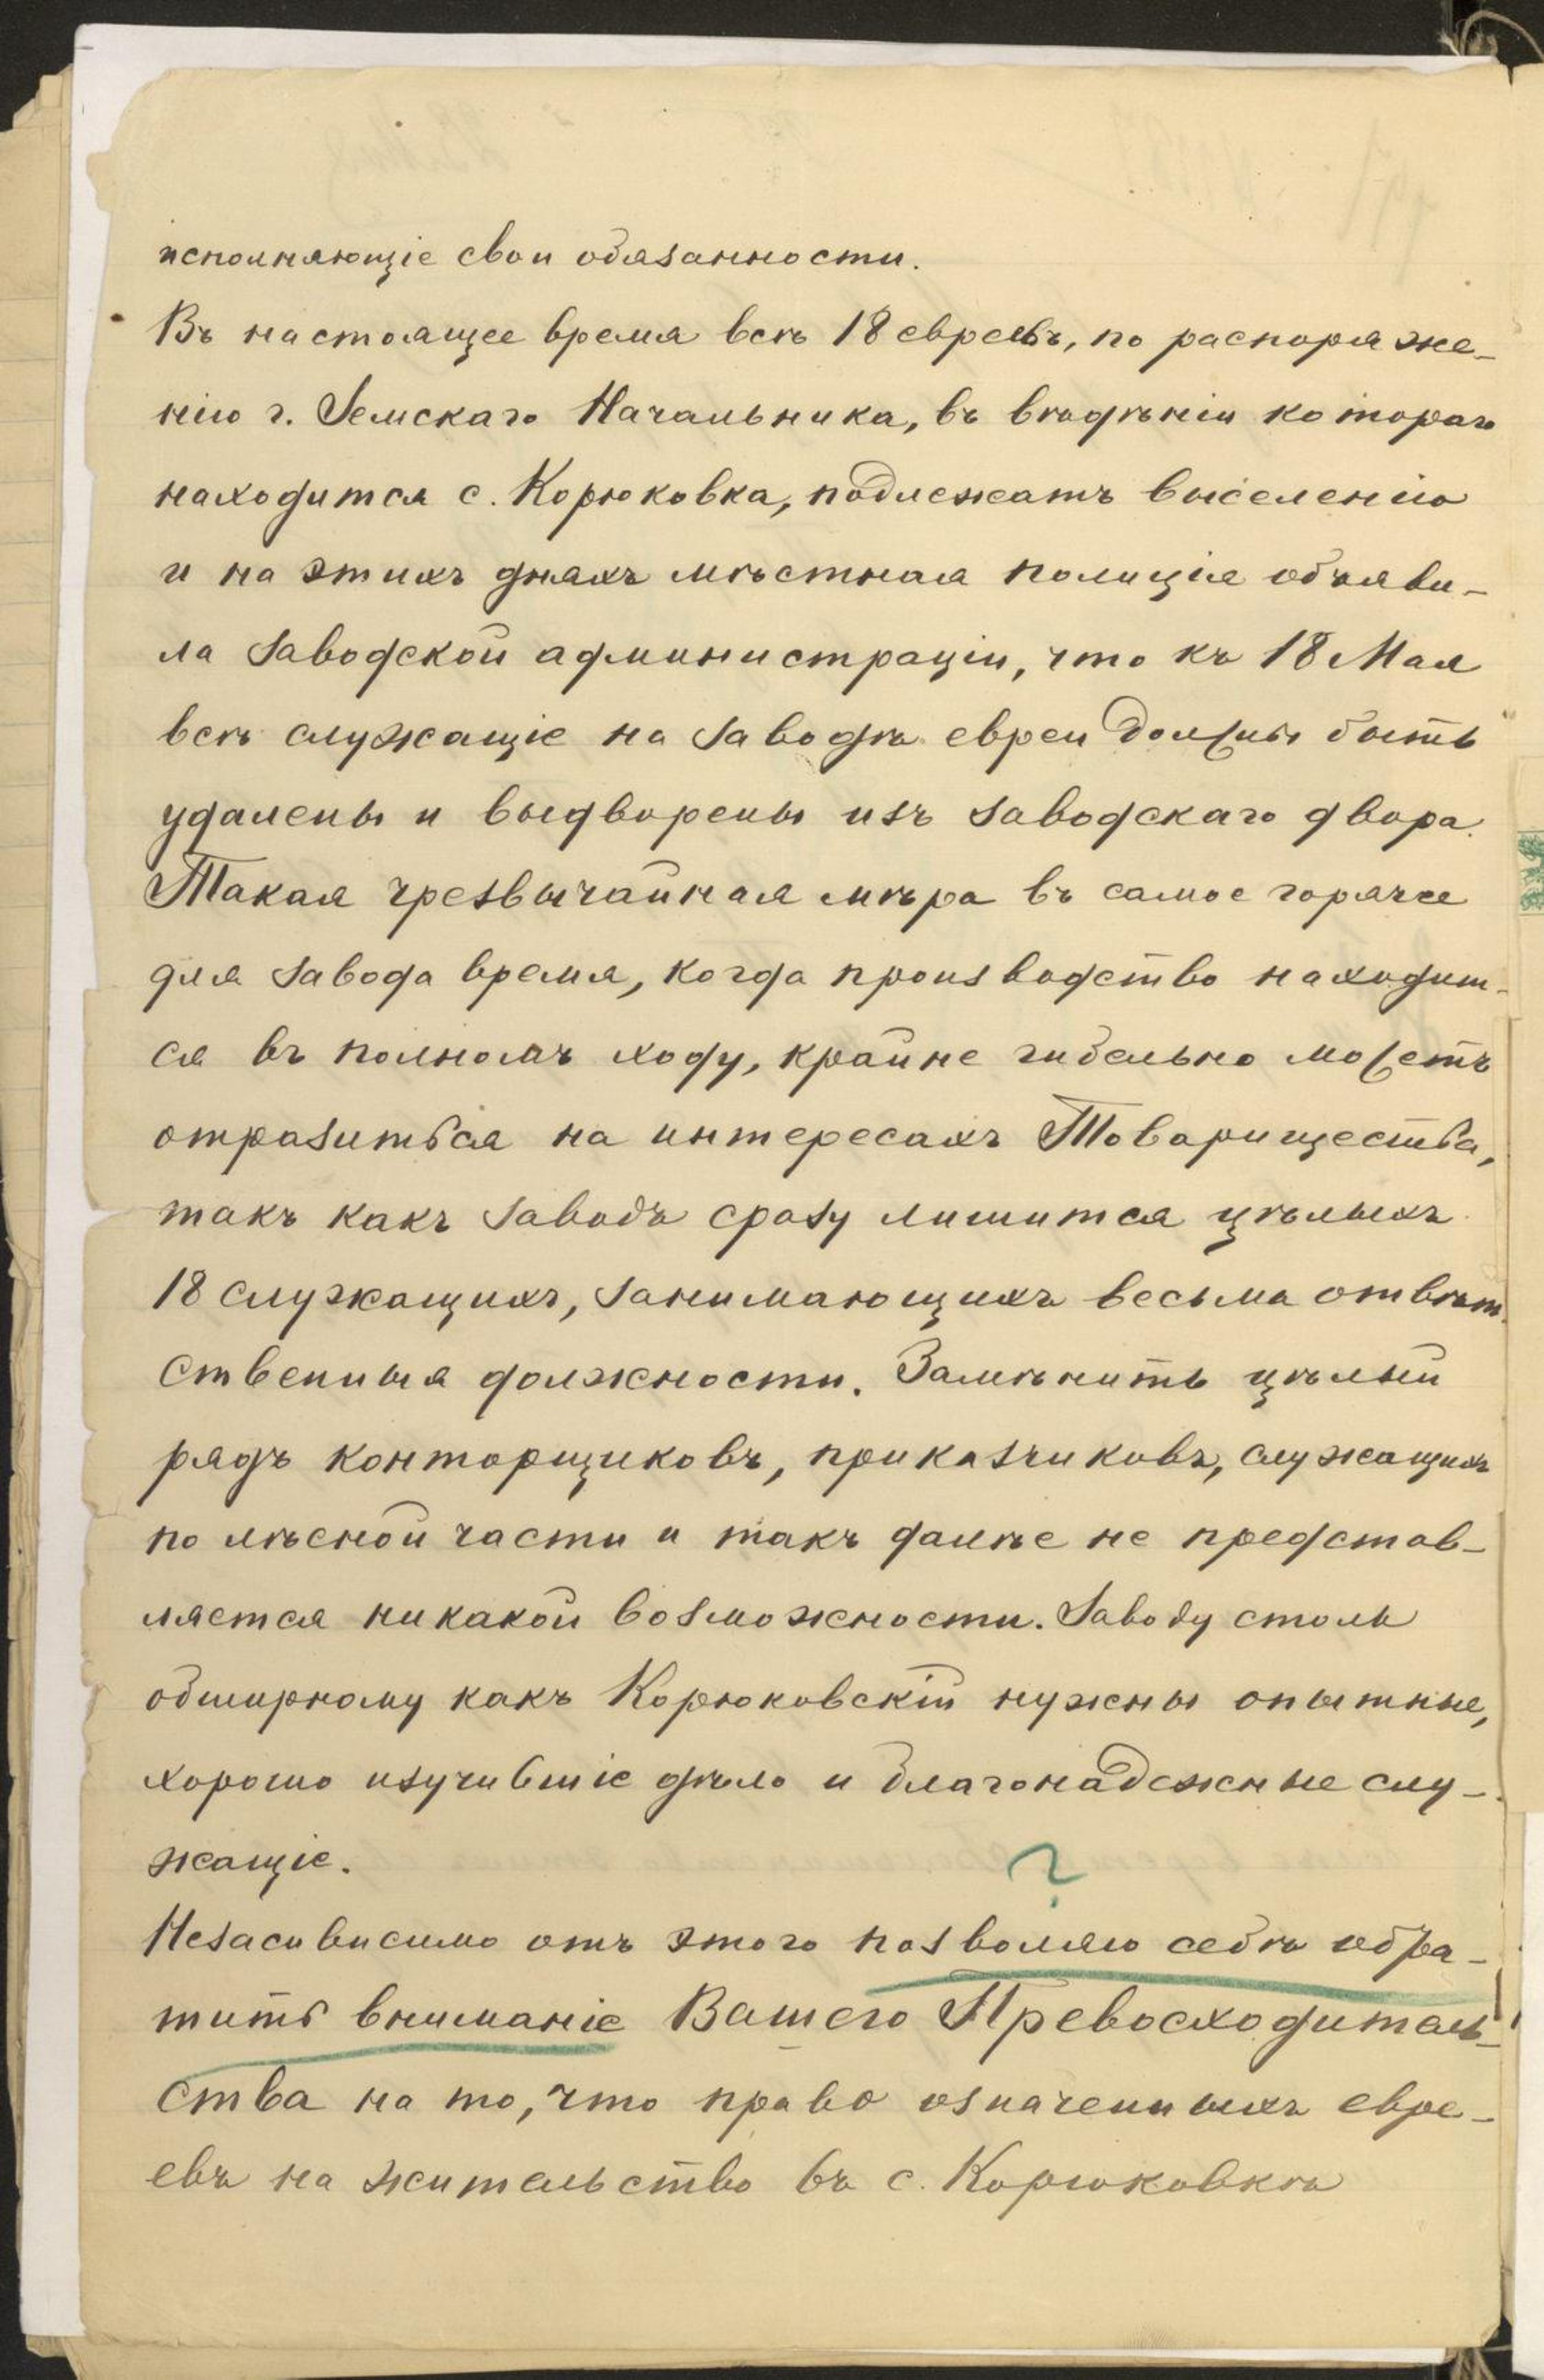 исполняющіе свои обязанности.
Въ настоящее время всѣ 18 евреевъ, по распоряже-
нію г. Земскаго Начальника, въ вѣдѣніи котораго
находится с. Корюковка, подлежатъ выселенію
и на этихъ дняхъ мѣстная полиція объяви-
ла заводской администраціи, что къ 18 Мая
всѣ служащіе на заводѣ евреи должны быть
удалены и выдворены изъ заводскаго двора.
Такая чрезвычайная мѣра въ самое горячее
для завода время, когда производство находит-
ся въ полномъ ходу, крайне гибельно можетъ
отразиться на интересахъ Товарищества,
такъ какъ заводъ сразу лишится цѣлыхъ
18 служащихъ, занимающихъ весьма отвѣт-
ственныя должности. Замѣнить цѣлый
рядъ конторщиковъ, приказчиковъ, служащихъ
по лѣсной части и такъ далѣе не представ-
ляется никакой возможности. Заводу столь
обширному какъ Корюковскій нужны опытные,
хорошо изучившіе дѣло и благонадежные слу-
жащіе.
?
Независимо отъ этого позволяю себѣ обра-
тить вниманіе Вашего Превосходитель-
ства на то, что право означенныхъ евре-
евъ на жительство въ с. Корюковкѣ